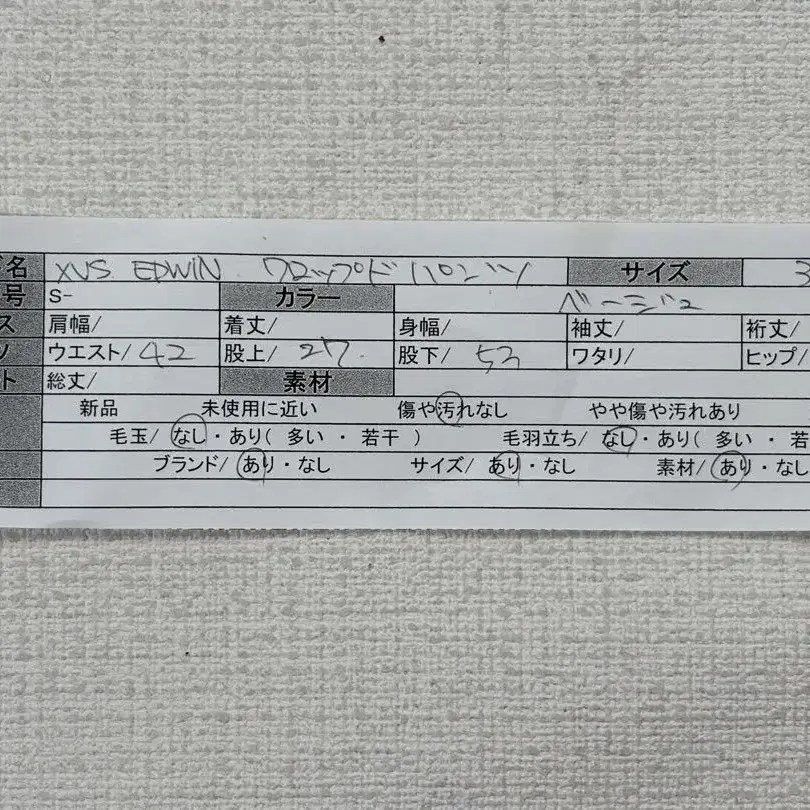 名 XVS EDWIN クロップドパンツ サイズ 3
号 S- カラー ベージュ
ス 肩幅/ 着丈/ 身幅/ 袖丈/ 裄丈/
ツ ウエスト/ 42 股上/ 27. 股下/ 53 ワタリ/ ヒップ/
ト 総丈/ 素材
新品 未使用に近い 傷や汚れなし やや傷や汚れあり
毛玉/ なし・あり( 多い ・ 若干 ) 毛羽立ち/ なし・あり( 多い ・ 若
ブランド/ あり・なし サイズ/ あり・なし 素材/ あり・なし